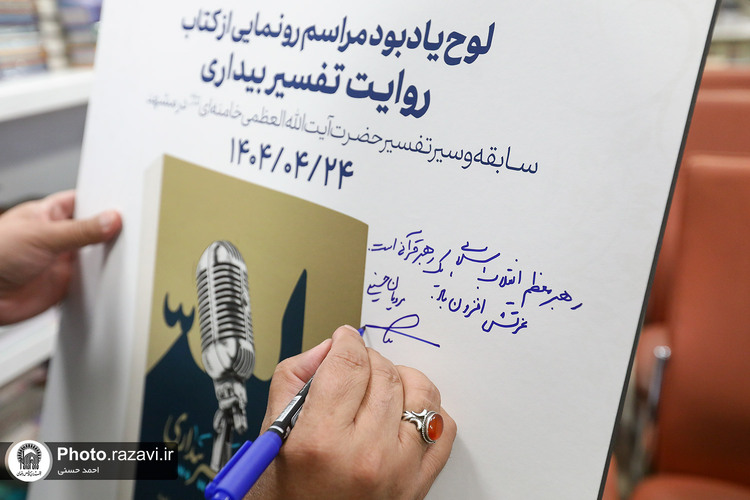 لوح یادبود مراسم رونمایی از کتاب
روایت تفسیر بیداری
سابقه و سیر تفسیر حضرت آیت الله العظمی خامنه‌ای در مشهد
۱۴۰۴/۰۴/۲۴
رهبر معظم انقلاب اسلامی یک رهبر قرآنی است.
عزتش افزون باد.
حسینی
بیداری
Photo.razavi.ir
احمد حسنی